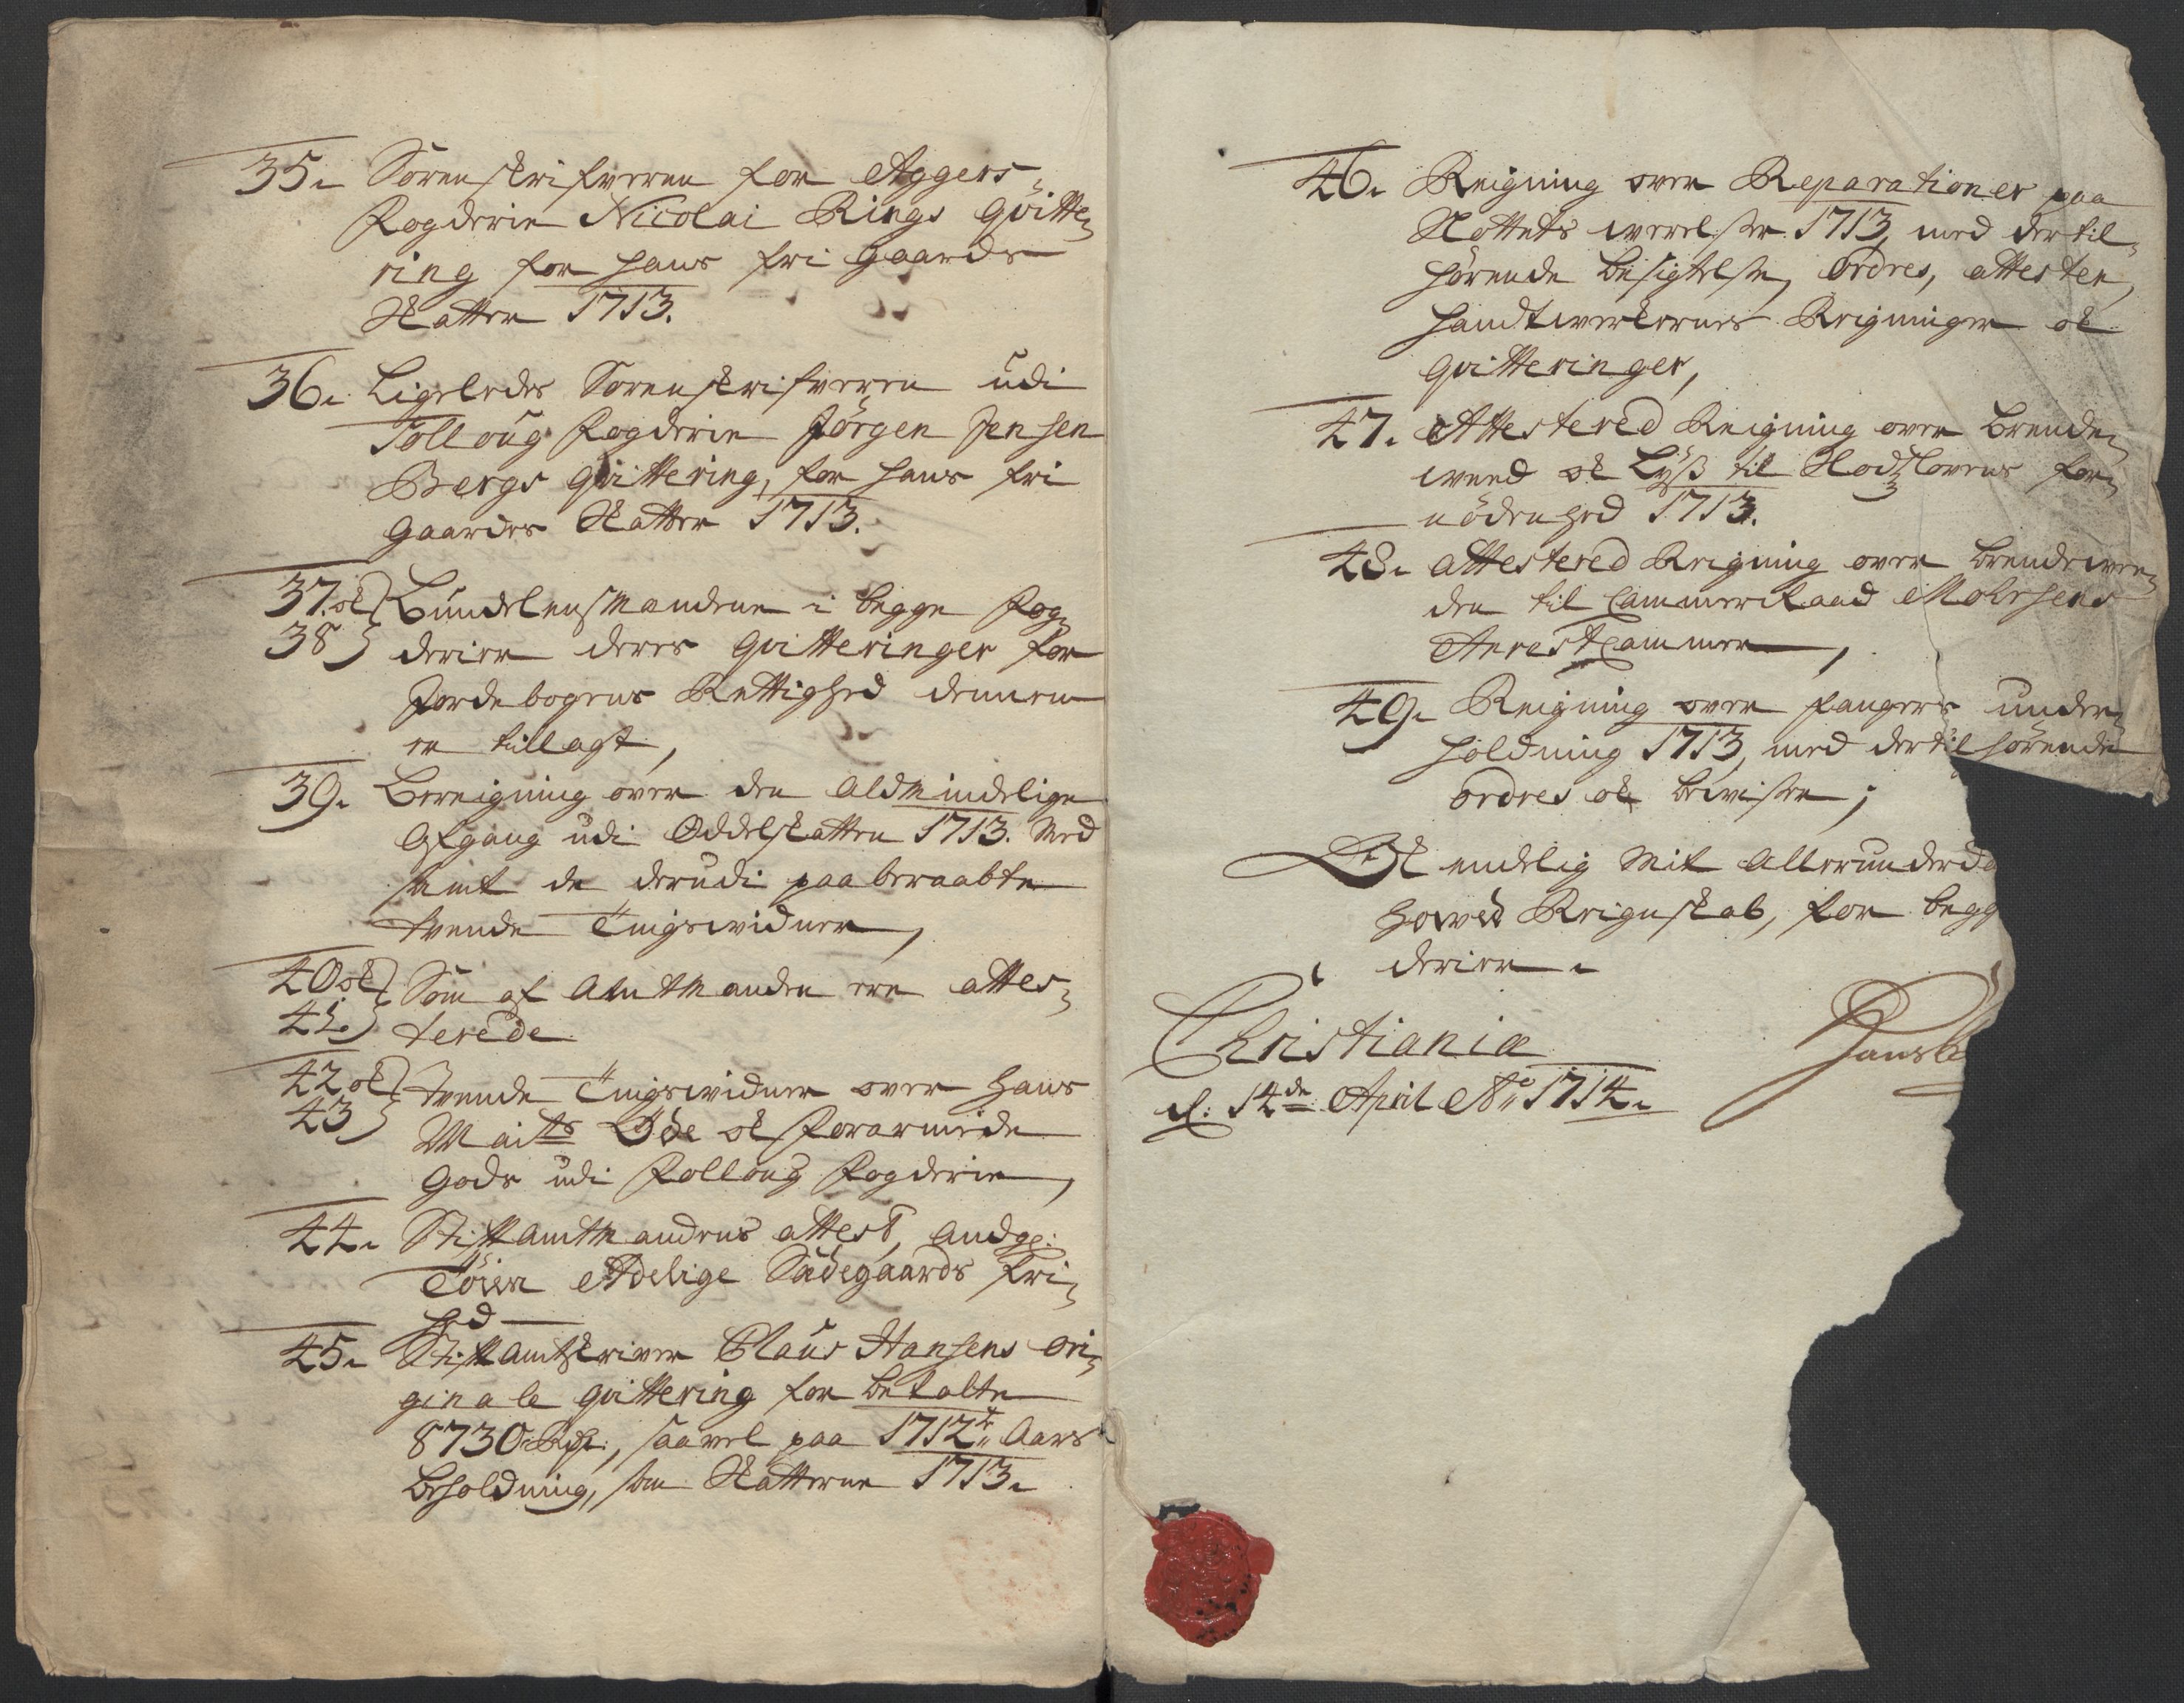 35. Sorenskrifveren for Aggers
Fogderie Nicolai Rings Qvitte
ring for hans fri Gaards
Skatter 1713.
36. Ligeledes Sorenskrifveren udi
Folloug Fogderie Jörgen Jensen
Bergs Qvittering, for hans fri
Gaardes Skatter 1713.
37. ok Bundelensmandene i begge Fog
38 derier deres Qvitteringer for
Jordebogens Rettighed dennem
er tillagt,
39. Bereigning over den Aldmindelige
Afgang udi Oddelskatten 1713. Med
samt de derudi paaberaabte
tvende Tingsvidner,
40 ok Som af Amtmanden ere attes
41. terede
42 ok tvende Tingsvidner over Hans
43 Maits Öde ok forarmede
Gods udi Folloug Fogderie,
44. Stiftamtmandens attest, andg:
Töien Adelige Sædegaards fri
hed
45. Stiftamtskriver Claus Hansens Ori
ginale qvittering for betalte
8730 Rdr:, saavel paa 1712te Aars
Besoldning, som Skatterne 1713.
46. Reigning over Reparationer paa
Slottets werelser 1713, med dertil
hörende besigtelse, Ordres, attester,
Handtwerkernes Reigninger ok
Qvitteringer,
47. Attestered Reigning over Brende
weed ok Lyß til Slodtzlovens for
nödenhed 1713.
48. Attestered Reigning over brendewee
den til Cammerraad Mohrsens
Arrest Cammer,
49. Reigning over fangers under
holdning 1713, med dertil hörende
ordres ok beviser;
Ok endelig Mit Allerunderda
Hoved Reignskab, for begg
derier.
Christiania
d. 14de April Ao 1714.
Hans